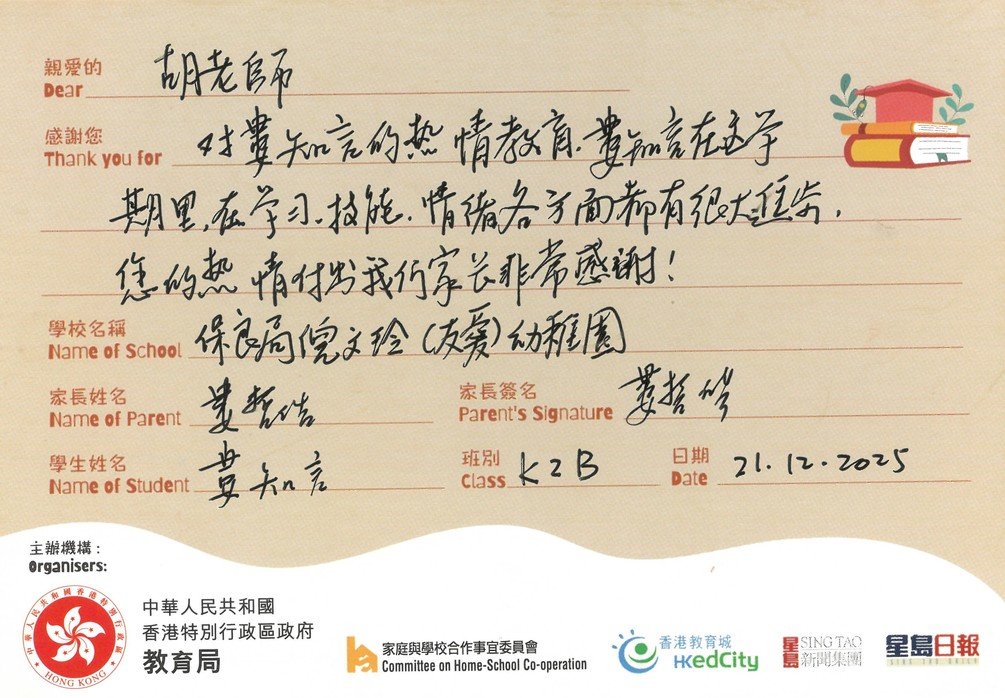 親愛的 胡老師
Dear
感謝您
Thank you for 对娄知言的热情教育.娄知言在这学
期里,在学习、技能、情绪各方面都有很大进步,
您的热情付出我们家长非常感謝!
學校名稱
Name of School 保良局倪文玲(友愛)幼稚園
家長姓名 家長簽名
Name of Parent 娄哲皓 Parent's Signature 娄哲皓
學生姓名 班別 日期
Name of Student 娄知言 Class K2B Date 21.12.2025
主辦機構:
Organisers:
中華人民共和國香港特別行政區
HONG KONG
中華人民共和國
香港特別行政區政府
教育局
家庭與學校合作事宜委員會
Committee on Home-School Co-operation
香港教育城
HKedCity
星島 SING TAO
新聞集團
星島日報
SING TAO DAILY